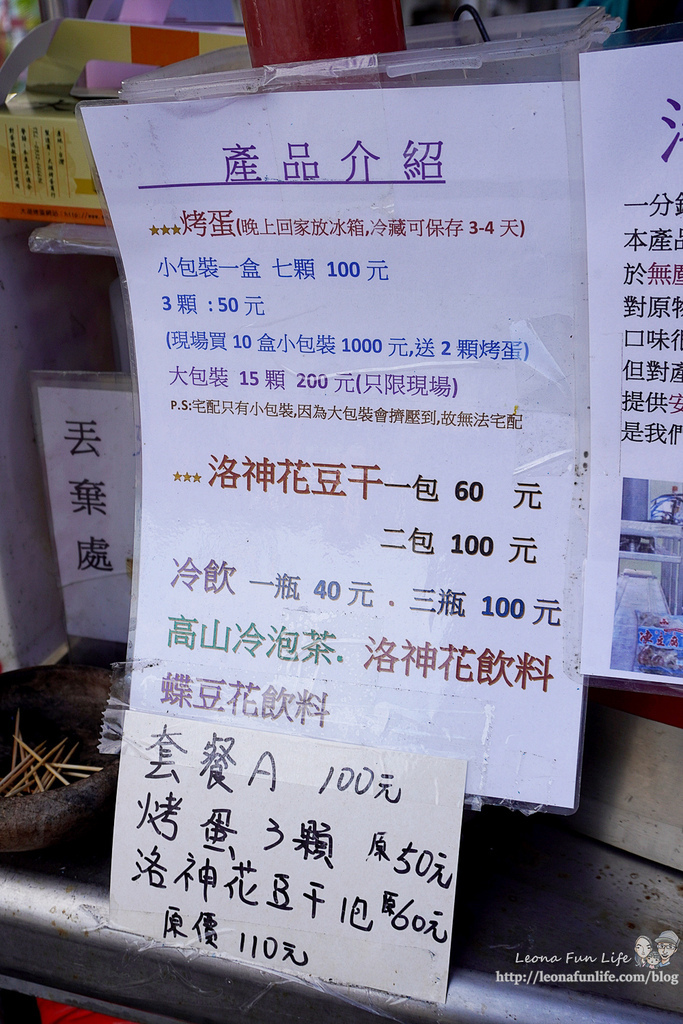 產品介紹
★★★烤蛋(晚上回家放冰箱,冷藏可保存 3-4 天)
小包裝一盒 七顆 100 元
3 顆 : 50 元
(現場買 10 盒小包裝 1000 元,送 2 顆烤蛋)
大包裝 15 顆 200 元(只限現場)
P.S:宅配只有小包裝,因為大包裝會擠壓到,故無法宅配
★★★洛神花豆干一包 60 元
二包 100 元
冷飲 一瓶 40 元 . 三瓶 100 元
高山冷泡茶. 洛神花飲料
蝶豆花飲料
套餐A 100元
烤蛋3顆 原50元
洛神花豆干1包 原60元
原價 110元
丟棄處
一分
本產品
於無塵
對原物
口味很
但對產
提供安
是我們
Leona Fun Life
http://leonafunlife.com/blog